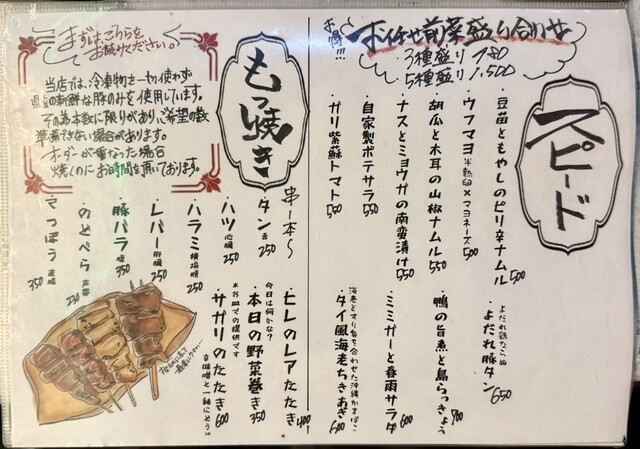 お得!!!
お任せ前菜盛り合わせ
3種盛り 980
5種盛り 1,500
スピード
豆苗ともやしのピリ辛ナムル 500
ウフマヨ 半熟卵×マヨネーズ 500
胡瓜と木耳の山椒ナムル 550
ナスとミョウガの南蛮漬け 550
自家製ポテサラ 550
ガリ紫蘇トマト 550
よだれ鶏ならぬ
よだれ豚タン 650
鴨の旨煮と島らっきょう 700
ミミガーと春雨サラダ 600
海老とすり身を合わせた沖縄かまぼこ
タイ風海老ちきあぎ 600
もつ焼き
まずはこちらを
お読みください。
当店では、冷凍物を一切使わず
県産の新鮮な豚のみを使用しています。
その為本数に限りがあり、ご希望の数
準備できない場合があります。
オーダーが重なった場合
焼くのにお時間を頂いております。
串1本〜
タン 舌 250
ハツ 心臓 250
ハラミ 横隔膜 250
レバー 肝臓 250
豚バラ 腹 350
のどぺら 声帯 230
てっぽう 直腸 350
ヒレのレアたたき 400
今日は何かな?
本日の野菜巻き 350
サガリのたたき 600